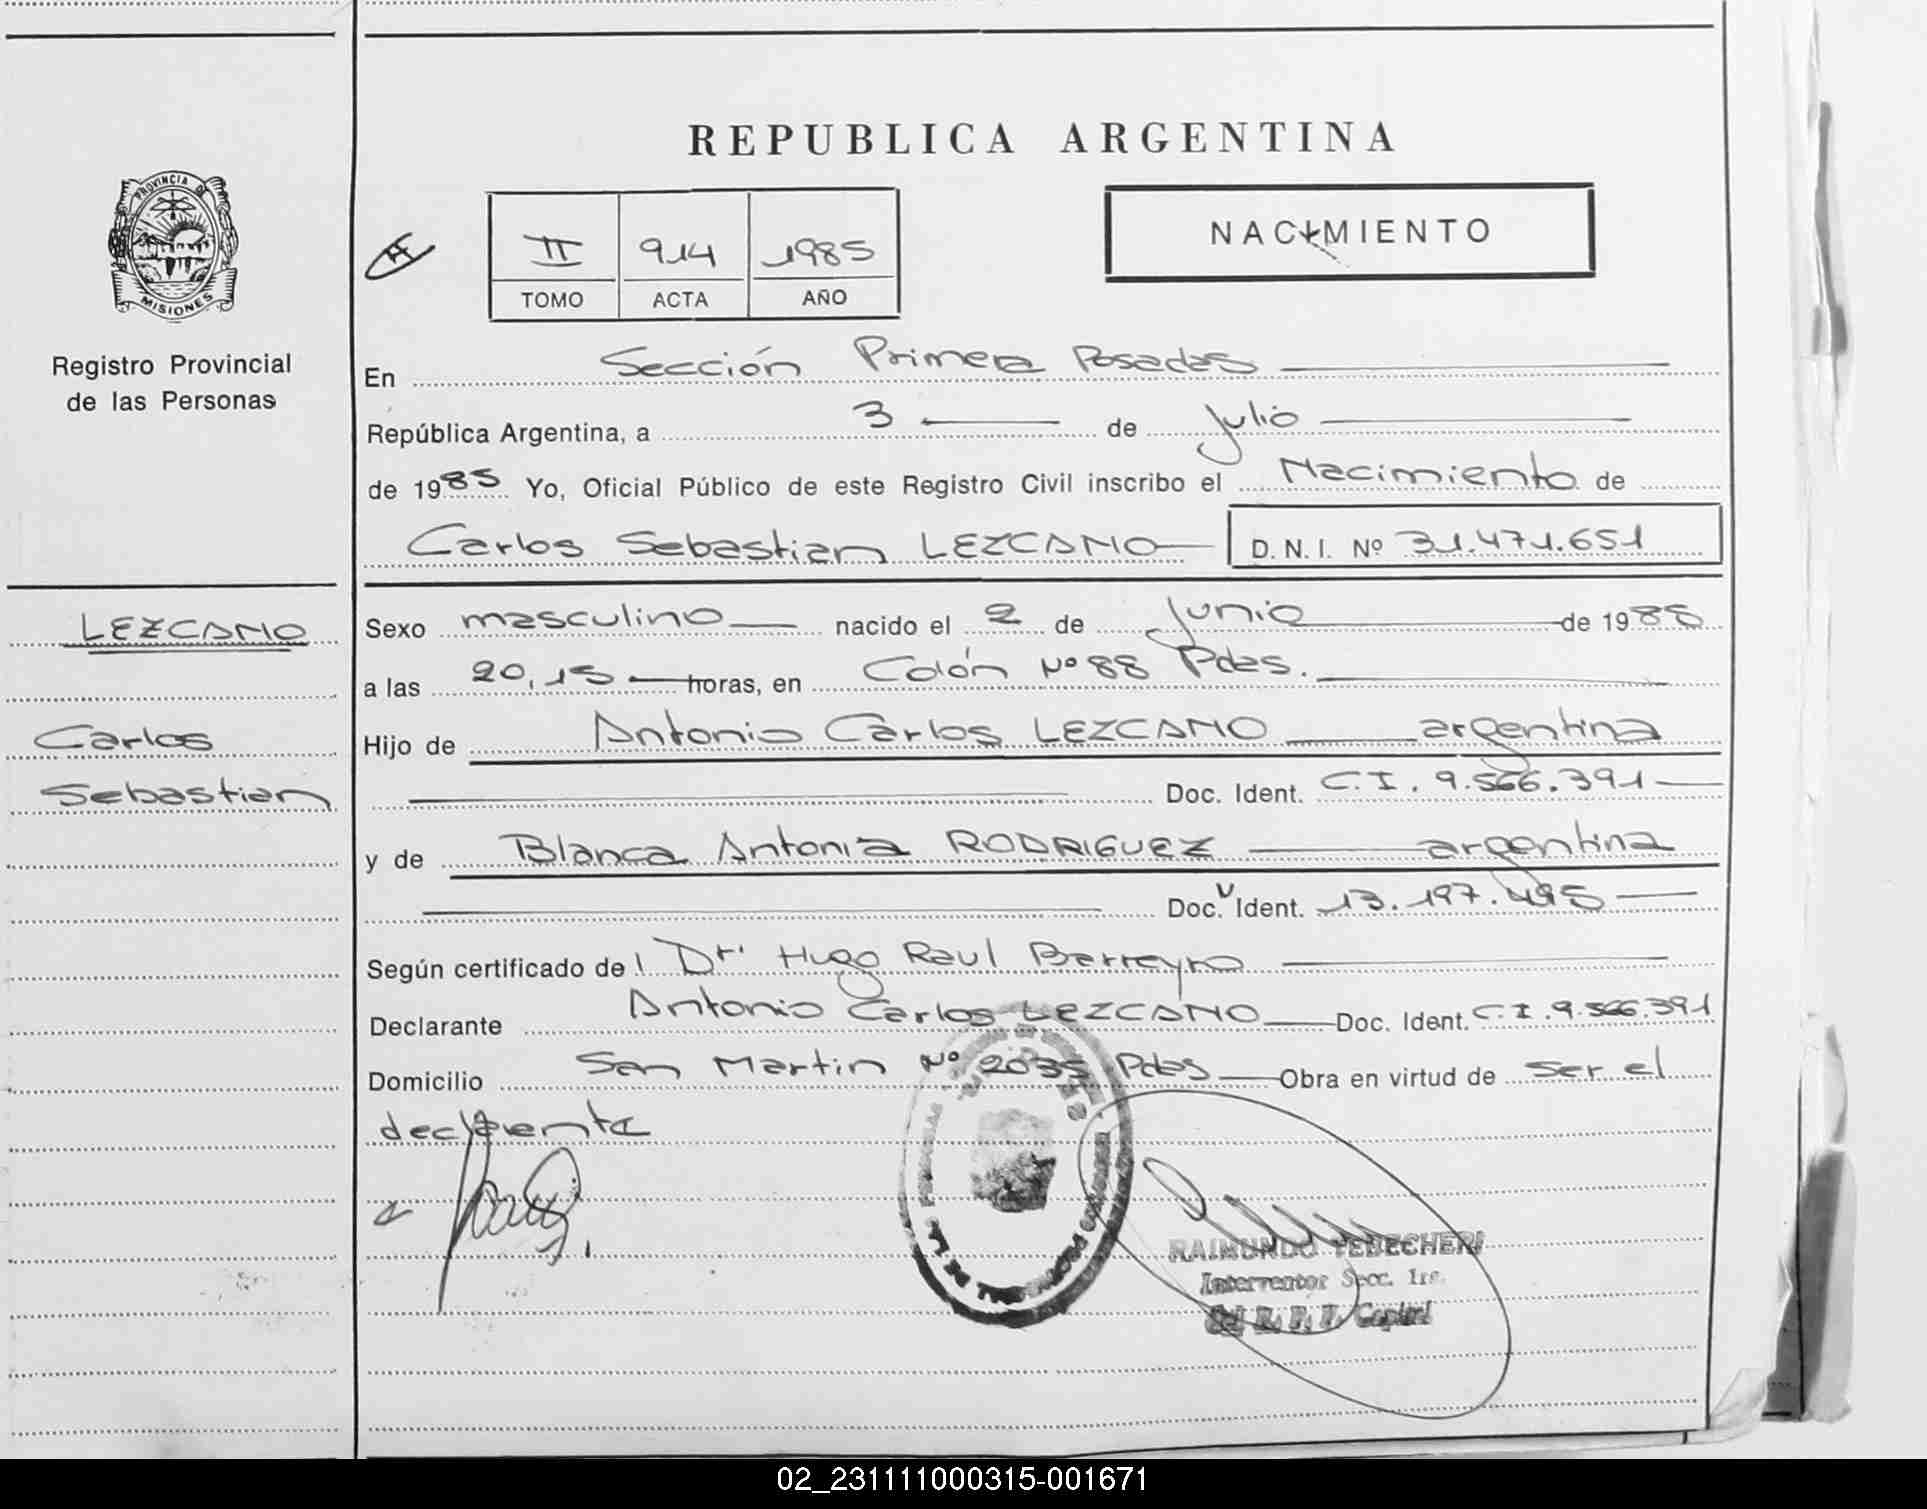 REPUBLICA ARGENTINA
PROVINCIA DE
MISIONES
Registro Provincial
de las Personas
II 914 1985
TOMO ACTA AÑO
NACIMIENTO
En Sección Primera Posadas
República Argentina, a 3 de Julio
de 1985 Yo, Oficial Público de este Registro Civil inscribo el Nacimiento de
Carlos Sebastian LEZCANO D. N. I. Nº 31.471.651
LEZCANO
Carlos
Sebastian
Sexo masculino nacido el 2 de Junio de 1985
a las 20,15 horas, en Colón Nº 88 Pdas.
Hijo de Antonio Carlos LEZCANO argentina
Doc. Ident. C.I. 9.566.391
y de Blanca Antonia RODRIGUEZ argentina
Doc. Ident. 13.197.495
Según certificado del Dr. Hugo Raul Barreyro
Declarante Antonio Carlos LEZCANO Doc. Ident. C.I. 9.566.391
Domicilio San Martin Nº 2035 Pdas Obra en virtud de ser el
declarante
RAIMUNDO TEBECHERI
Interventor Secc. 1ra.
del R. P. P. Capital
02_231111000315-001671